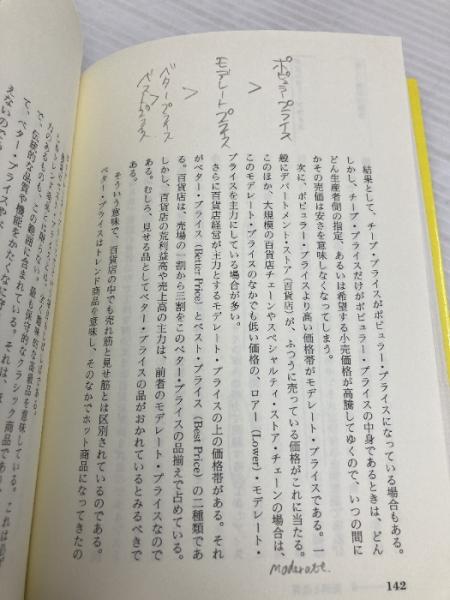 ポピュラープライス
>
モデレートプライス
>
ベタープライス
>
ベストプライス
結果として、チープ・プライスがポピュラー・プライスになっている場合もある。
しかし、チープ・プライスだけがポピュラー・プライスの中身であるときは、どん
どん生産者側の指定、あるいは希望する小売価格が高騰してゆくので、いつの間に
かその売価は安さを意味しなくなってしまう。
次に、ポピュラー・プライスより高い価格帯がモデレート・プライスである。一
般にデパートメント・ストア（百貨店）が、ふつうに売っている価格がこれに当たる。
このほか、大規模の百貨店チェーンやスペシャルティ・ストア・チェーンの場合は、
このモデレート・プライスのなかでも低い価格の、ロアー（Lower）・モデレート・
プライスを主力にしている場合が多い。
さらに百貨店経営が主力とするモデレート・プライスの上の価格帯がある。それ
がベター・プライス（Better Price）とベスト・プライス（Best Price）の二種類であ
る。百貨店は、売場の一割から三割をこのベター・プライスの品揃えで占めている。
しかし、百貨店の荒利益高や売上高の主力は、前者のモデレート・プライスなので
ある。むしろ、見せる品としてベター・プライスの品がおかれているとみるべきで
ある。
そういう意味で、百貨店の中でも売れ筋と見せ筋とは区別されているのである。
ベター・プライスはトレンド商品を意味し、そのなかでホット商品になってきたの
moderate
142